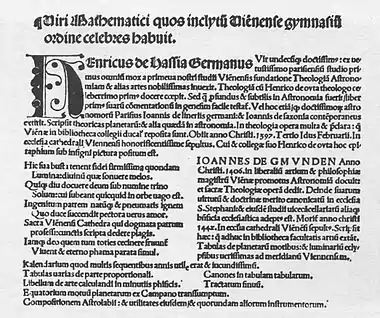 Viri Mathematici quos inclytũ Viẽnense gymnasiũ
ordine celebres habuit.
HEnricus de Hassia Germanus Vir undecũq̃ doctissimꝰ: ex ve-
tustissimo parisiensiũ studio pri
mus omniũ mox a primeua nostri studii Viẽnensis fundatione Theologiã Astrono-
miam & alias artes nobilissimas inuexit. Theologiã cũ Henrico de oyta theologo ce
leberrimo primꝰ docere cœpit. Sed q̃ ꝓfundus & subtilis in Astronomia fuerit: liber
primꝰ suarũ cõmentationũ in genesim facile testat̃. Vel hoc etiã qꝫ doctissimoꝝ astro
nomoꝝ Parisius Ioannis de lineriis germani: & Ioannis de saxonia contẽporaneus
extitit. Scripsit theoricas planetarũ: & alia quædã in astronomia. In theologia opera multa & p̃clara: q̃
Viẽnæ in bibliotheca collegii ducal̃ reposita sunt. Obiit anno Christi. 1397. Tertio Idus Februarii. In
ecclesia cathedrali Viennensi honorificentissime sepultus. Cui & collegæ suo Henrico de oyta hoc epi
taphium sub insigni pictura positum est.
Hic sua busta tenent fidei firmissima quondam
Lumina: diuini quæ fouuere modos.
Quicq̃ diu docuere deum sub numine trino
Solamenꝫ subeant quicquid in orbe uago est.
Ingenium patrem natũq̃ & pneumatis ignem
Quo duce succendit pectora uerus amor.
Sacra Viẽnensi Cathedra qui dogmata patrum
professi cunctis scripta dedere plagis.
Iamq̃ deo quem tum toties cecinere fruunt̃
Viuent & eterno phama parata simul.
IOANNES DE GMVNDEN Anno
Christi. 1406. in liberaliũ artium & philosophiæ
magistrũ Viẽnæ promotus Astronomiã docuit
et sacræ Theologiæ operã dedit. Deinde suarum
uirtutũ & doctrinæ merito canonicatũ in ecclesia
S. Stephani: & eiusdẽ studii uicecãcellariatũ aliaq̃
bñficia ecclesiastica adeptꝰ est. Moritr̃ anno christi
1442. In ecclesia cathedrali Viẽnẽsi sepultꝰ. Scripsit
hæc: q̃ adhuc in bibliotheca facultatis artiũ extãt.
Tabulas de planetarũ motibus: & luminariũ ecly
psibus uerissimas ad meridianũ Viennensim.
Kalendarium quod multis sequentibus annis utile erat & iucundissimũ.
Tabulas uarias de parte proportionali.
Canones in tabulam tabularum.
Libellum de arte calculandi in minutiis phisicis.
Tractatum sinuũ.
Equatorium motuũ planetarum ex Campano transsumptum.
Compositionem Astrolabii: & utilitates eiusdem: & quorundam aliorum instrumentorum.